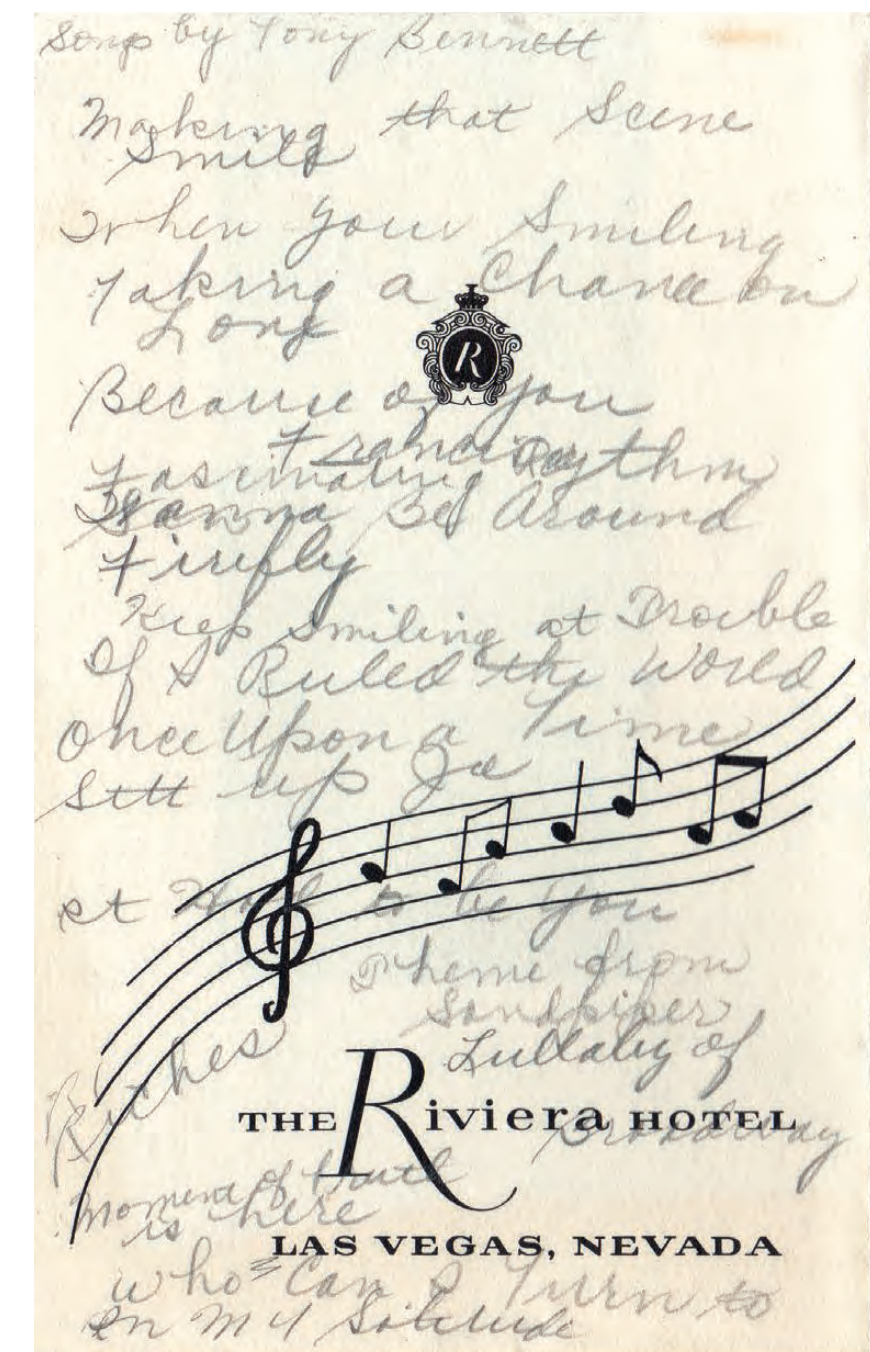 Songs by Tony Bennett
Making that Scene
Smile
When Your Smiling
Taking a Chance on
Love
R
Because of You
Francisco
Fascinating Rythm
Wanna Be Around
Firefly
Keep Smiling at Trouble
If I Ruled the World
Once Upon a Time
Sett up Joe
et Had to be You
Theme from
Sandpiper
Lullaby of
Broadway
Riches
THE Riviera HOTEL
Moment of Truth
is here
LAS VEGAS, NEVADA
Who Can I Turn to
In My Solitude